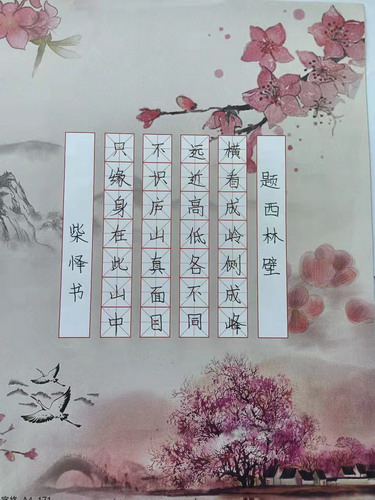 题西林壁
横看成岭侧成峰
远近高低各不同
不识庐山真面目
只缘身在此山中
柴怿书